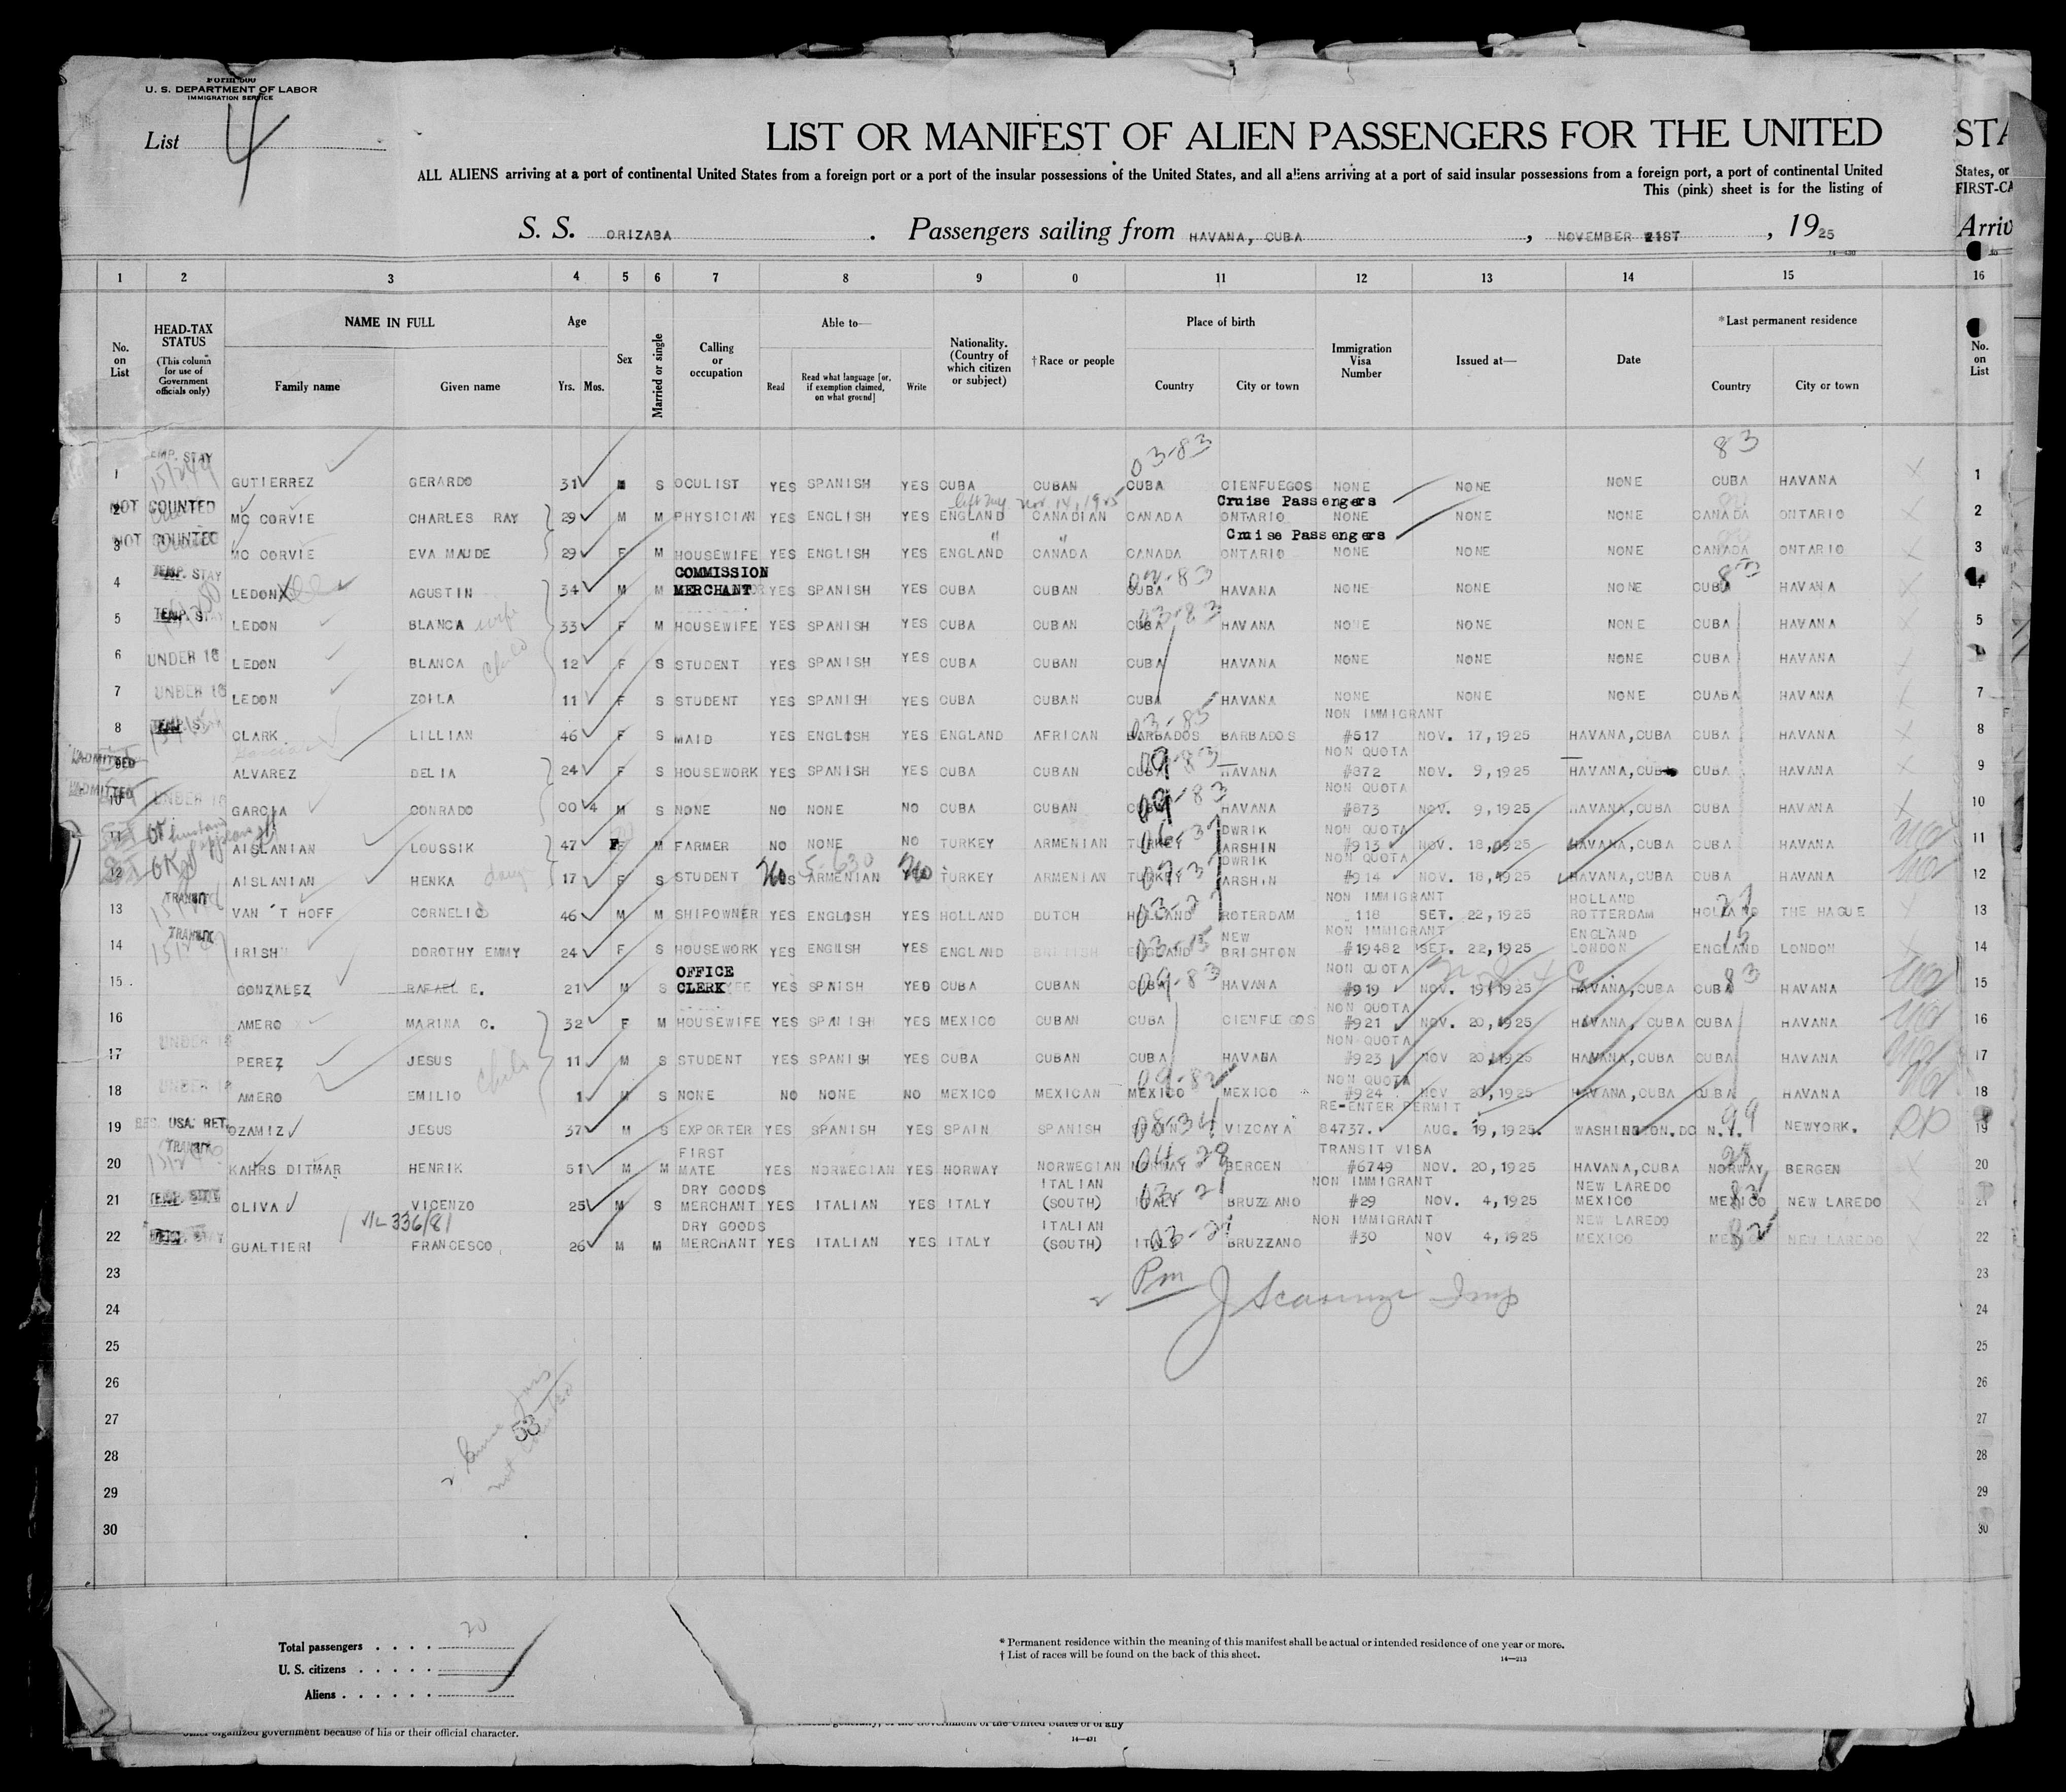 Form 500
U. S. DEPARTMENT OF LABOR
IMMIGRATION SERVICE
List 4
LIST OR MANIFEST OF ALIEN PASSENGERS FOR THE UNITED STA
ALL ALIENS arriving at a port of continental United States from a foreign port or a port of the insular possessions of the United States, and all aliens arriving at a port of said insular possessions from a foreign port, a port of continental United States, or
This (pink) sheet is for the listing of FIRST-CA
S. S. ORIZABA. Passengers sailing from HAVANA, CUBA, NOVEMBER 21ST, 1925 Arriv
14-430
1 2 3 4 5 6 7 8 9 0 11 12 13 14 15 16
No. on List
HEAD-TAX STATUS (This column for use of Government officials only)
NAME IN FULL Family name Given name
Age Yrs. Mos.
Sex
Married or single
Calling or occupation
Able to— Read Read what language [or, if exemption claimed, on what ground] Write
Nationality. (Country of which citizen or subject)
†Race or people
Place of birth Country City or town
Immigration Visa Number
Issued at—
Date
*Last permanent residence Country City or town
No. on List
03-83 83
1 TEMP. STAY GUTIERREZ GERARDO 31 M S OCULIST YES SPANISH YES CUBA CUBAN CUBA CIENFUEGOS NONE NONE NONE CUBA HAVANA 1
Nov 14, 1925 Cruise Passengers
2 NOT COUNTED MC CORVIE CHARLES RAY 29 M M PHYSICIAN YES ENGLISH YES ENGLAND CANADIAN CANADA ONTARIO NONE NONE NONE CANADA ONTARIO 2
" " Cruise Passengers
3 NOT COUNTED MC CORVIE EVA MAUDE 29 F M HOUSEWIFE YES ENGLISH YES ENGLAND CANADA CANADA ONTARIO NONE NONE NONE CANADA ONTARIO 3
4 TEMP. STAY LEDON AGUSTIN 34 M M COMMISSION MERCHANT YES SPANISH YES CUBA CUBAN CUBA HAVANA NONE NONE NONE CUBA 83 HAVANA 4
5 TEMP. S. LEDON BLANCA wife 33 F M HOUSEWIFE YES SPANISH YES CUBA CUBAN CUBA 03-83 HAVANA NONE NONE NONE CUBA HAVANA 5
6 UNDER 16 LEDON BLANCA child 12 F S STUDENT YES SPANISH YES CUBA CUBAN CUBA HAVANA NONE NONE NONE CUBA HAVANA 6
7 UNDER 16 LEDON ZOILA 11 F S STUDENT YES SPANISH YES CUBA CUBAN CUBA HAVANA NONE NONE NONE CUABA HAVANA 7
8 CLARK LILLIAN 46 F S MAID YES ENGLISH YES ENGLAND AFRICAN BARBADOS 03-85 BARBADOS NON IMMIGRANT #517 NOV. 17, 1925 HAVANA, CUBA CUBA HAVANA 8
9 ADMITTED ALVAREZ DELIA 24 F S HOUSEWORK YES SPANISH YES CUBA CUBAN CUBA 09-83 HAVANA NON QUOTA #872 NOV. 9, 1925 HAVANA, CUBA CUBA HAVANA 9
10 ADMITTED UNDER 16 GARCIA CONRADO 00 4 M S NONE NO NONE NO CUBA CUBAN CUBA 09-83 HAVANA NON QUOTA #873 NOV. 9, 1925 HAVANA, CUBA CUBA HAVANA 10
11 AISLANIAN LOUSSIK 47 F M FARMER NO NONE NO TURKEY ARMENIAN TURKEY DWRIK ARSHIN NON QUOTA #913 NOV. 18, 1925 HAVANA, CUBA CUBA HAVANA 11
12 OK AISLANIAN HENKA 17 F S STUDENT No 5-630 ARMENIAN No TURKEY ARMENIAN TURKEY DWRIK ARSHIN NON QUOTA #914 NOV. 18, 1925 HAVANA, CUBA CUBA HAVANA 12
13 TRANSIT VAN 'T HOFF CORNELIS 46 M M SHIPOWNER YES ENGLISH YES HOLLAND DUTCH HOLLAND ROTERDAM NON IMMIGRANT 118 SET. 22, 1925 HOLLAND ROTTERDAM HOLLAND THE HAGUE 13
14 TRANSIT IRISH DOROTHY EMMY 24 F S HOUSEWORK YES ENGILSH YES ENGLAND BRITISH ENGLAND 03-15 NEW BRIGHTON NON IMMIGRANT #19482 SET. 22, 1925 ENGLAND LONDON ENGLAND 15 LONDON 14
15 GONZALEZ RAFAEL E. 21 M S OFFICE CLERK YES SPNISH YES CUBA CUBAN CUBA 09-83 HAVANA NON QUOTA #919 NOV. 19, 1925 HAVANA, CUBA CUBA 83 HAVANA 15
16 AMERO MARINA C. 32 F M HOUSEWIFE YES SPANISH YES MEXICO CUBAN CUBA CIENFUEGOS NON QUOTA #921 NOV. 20, 1925 HAVANA, CUBA CUBA HAVANA 16
17 UNDER 16 PEREZ JESUS 11 M S STUDENT YES SPANISH YES CUBA CUBAN CUBA HAVANA NON QUOTA #923 NOV 20, 1925 HAVANA, CUBA CUBA HAVANA 17
18 UNDER 16 AMERO EMILIO child 1 M S NONE NO NONE NO MEXICO MEXICAN MEXICO 09-82 MEXICO NON QUOTA #924 NOV 20, 1925 HAVANA, CUBA CUBA HAVANA 18
19 USA. RET. OZAMIZ JESUS 37 M S EXPORTER YES SPANISH YES SPAIN SPANISH SPAIN 08-34 VIZCAYA RE-ENTER PERMIT 84737. AUG. 19, 1925. WASHINGTON. DC N.Y. 99 NEWYORK. RP 19
20 TRANSIT KAHRS DITMAR HENRIK 51 M M FIRST MATE YES NORWEGIAN YES NORWAY NORWEGIAN NORWAY 04-28 BERGEN TRANSIT VISA #6749 NOV. 20, 1925 HAVANA, CUBA NORWAY 28 BERGEN 20
21 TEMP. STAY OLIVA VICENZO 25 M S DRY GOODS MERCHANT YES ITALIAN YES ITALY ITALIAN (SOUTH) ITALY 03-21 BRUZZANO NON IMMIGRANT #29 NOV. 4, 1925 NEW LAREDO MEXICO MEXICO NEW LAREDO 21
336/81
22 TEMP. STAY GUALTIERI FRANCESCO 26 M M DRY GOODS MERCHANT YES ITALIAN YES ITALY ITALIAN (SOUTH) ITALY 03-21 BRUZZANO NON IMMIGRANT #30 NOV 4, 1925 NEW LAREDO MEXICO MEXICO 82 NEW LAREDO 22
23 Pm 23
24 24
25 25
26 26
27 53 27
28 28
29 29
30 30
Total passengers . . . . 20
U. S. citizens . . . . .
Aliens . . . . . .
* Permanent residence within the meaning of this manifest shall be actual or intended residence of one year or more.
† List of races will be found on the back of this sheet.
14-213
other organized government because of his or their official character.
14-431